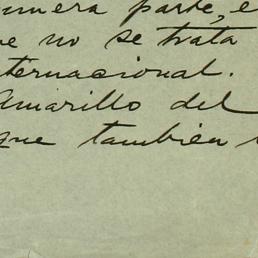 imera parte, e
e no se trata
ternacional.
Amarillo del
que también